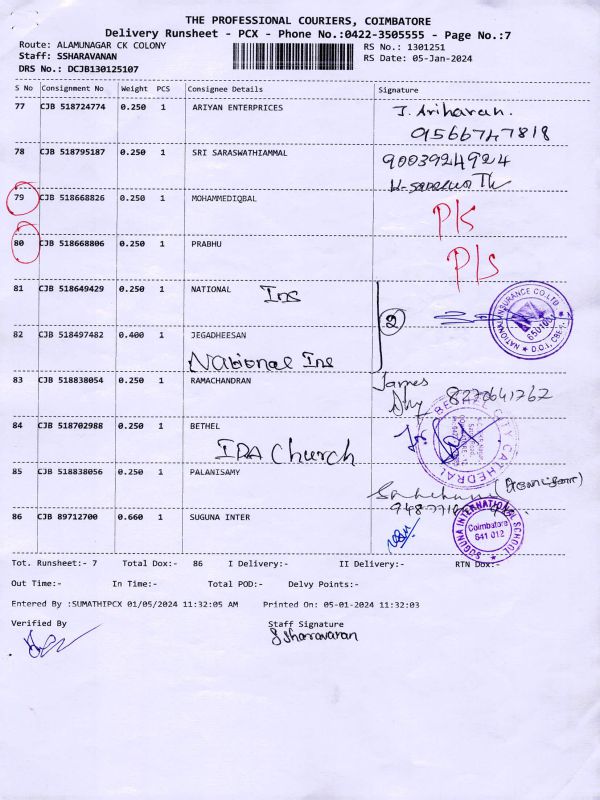 THE PROFESSIONAL COURIERS, COIMBATORE
Delivery Runsheet - PCX - Phone No.:0422-3505555 - Page No.:7
Route: ALAMUNAGAR CK COLONY
RS No.: 1301251
Staff: SSHARAVANAN
RS Date: 05-Jan-2024
DRS No.: DCJB130125107
S No Consignment No Weight PCS Consignee Details Signature
77 CJB 518724774 0.250 1 ARIYAN ENTERPRICES J. Ariharan.
9566747818
78 CJB 518795187 0.250 1 SRI SARASWATHIAMMAL 9003924924
79 CJB 518668826 0.250 1 MOHAMMEDIQBAL P/S
80 CJB 518668806 0.250 1 PRABHU P/S
81 CJB 518649429 0.250 1 NATIONAL Ins
2
NATIONAL INSURANCE CO.LTD
650103
82 CJB 518497482 0.400 1 JEGADHEESAN
National Ins
83 CJB 518838054 0.250 1 RAMACHANDRAN James
8270641762
84 CJB 518702988 0.250 1 BETHEL
IPA Church
BETHEL CITY CATHEDRAL
85 CJB 518838056 0.250 1 PALANISAMY
86 CJB 89712700 0.660 1 SUGUNA INTER
SUGUNA INTERNATIONAL SCHOOL
Coimbatore
641 012
Tot. Runsheet:- 7 Total Dox:- 86 I Delivery:- II Delivery:- RTN Dox:-
Out Time:- In Time:- Total POD:- Delvy Points:-
Entered By :SUMATHIPCX 01/05/2024 11:32:05 AM Printed On: 05-01-2024 11:32:03
Verified By
Staff Signature
SSharavanan